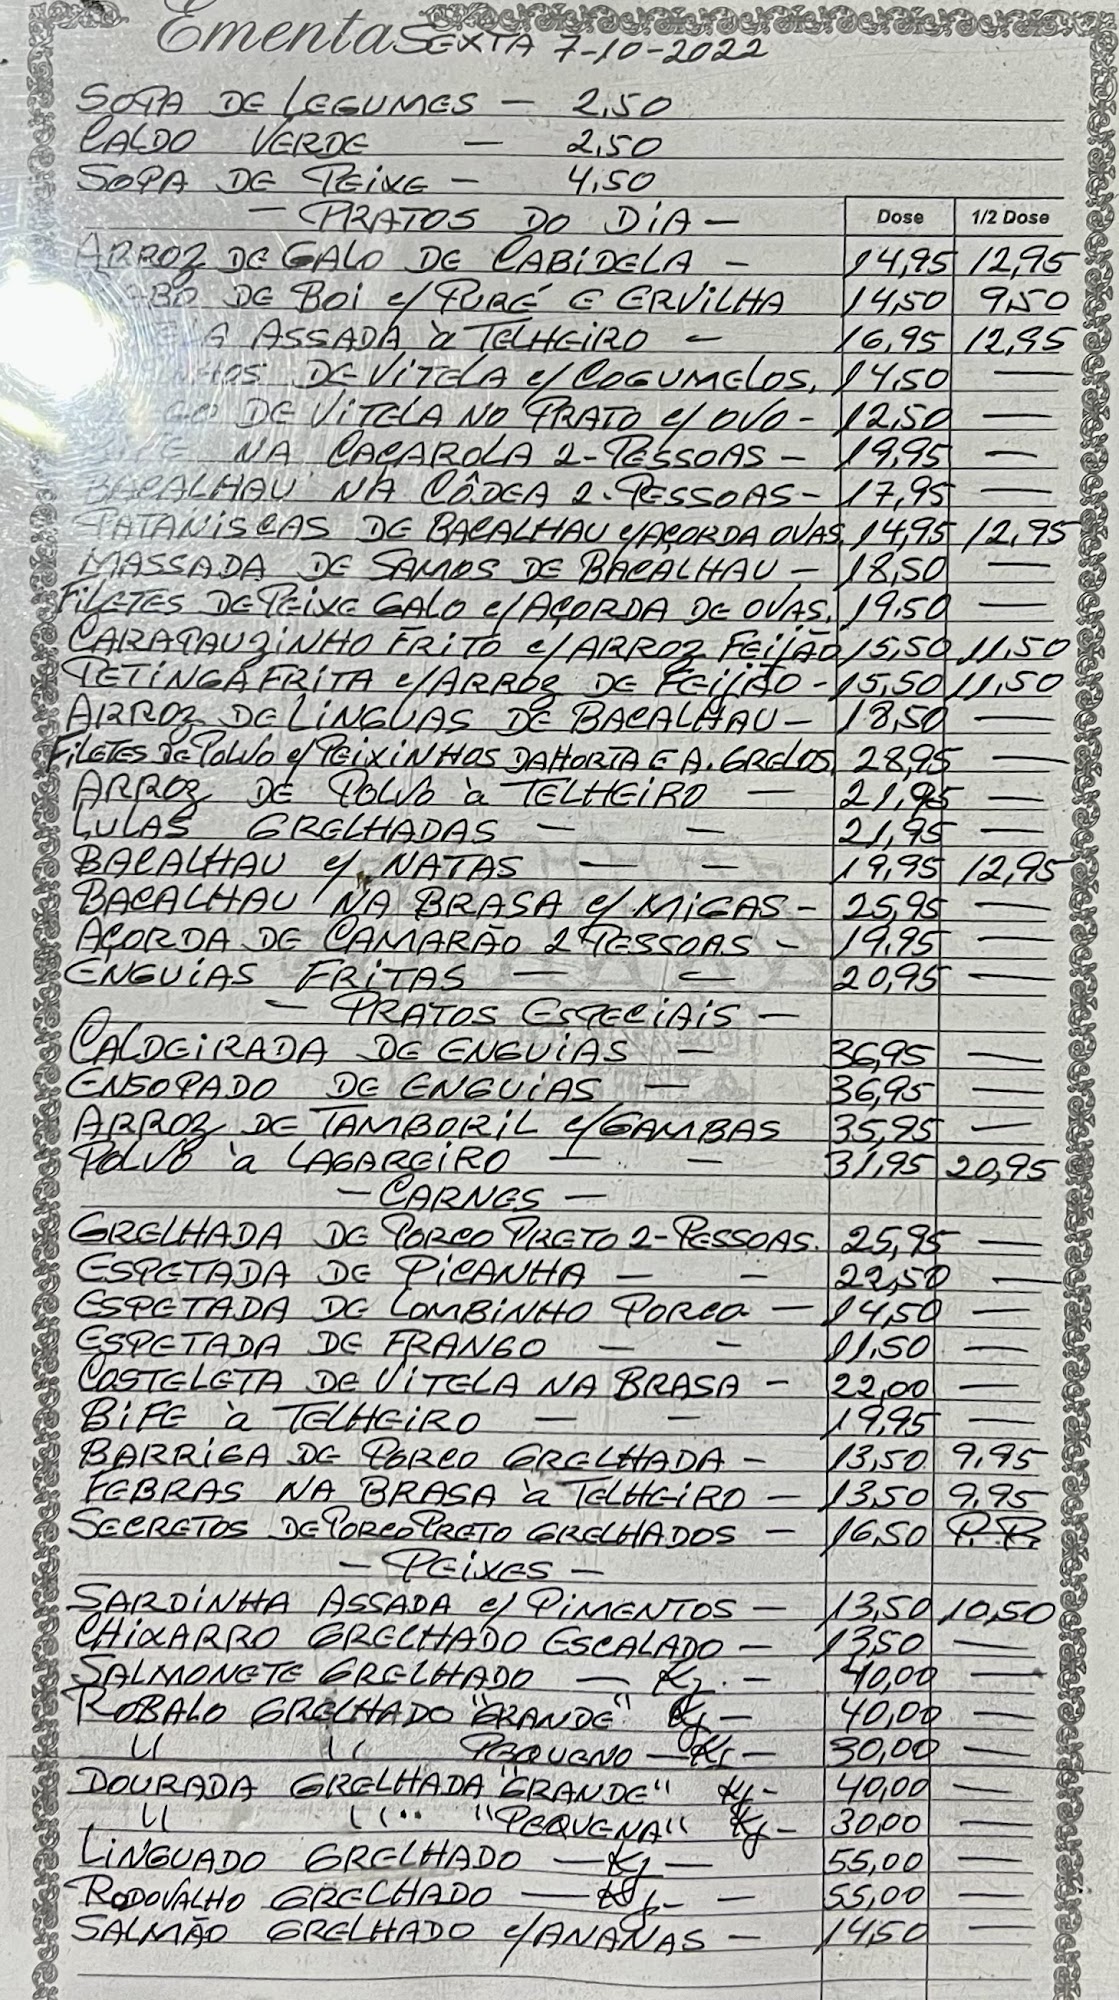 Ementa SEXTA 7-10-2022
SOPA DE LEGUMES — 2,50
CALDO VERDE — 2,50
SOPA DE PEIXE — 4,50
— PRATOS DO DIA — Dose 1/2 Dose
ARROZ DE GALO DE CABIDELA — 14,95 12,95
DE BOI c/ PURÉ E ERVILHA 14,50 9,50
ASSADA à TELHEIRO — 16,95 12,95
DE VITELA c/ COGUMELOS. 14,50 —
DE VITELA NO PRATO c/ OVO - 12,50 —
NA CAÇAROLA 2-PESSOAS — 19,95 —
BACALHAU NA CÔDEA 2-PESSOAS — 17,95 —
PATANISCAS DE BACALHAU c/AÇORDA OVAS. 14,95 12,95
MASSADA DE SAMOS DE BACALHAU — 18,50 —
FILETES DE PEIXE GALO c/AÇORDA DE OVAS. 19,50 —
CARAPAUZINHO FRITO c/ ARROZ FEIJÃO 15,50 11,50
PETINGA FRITA c/ARROZ DE FEIJÃO - 15,50 11,50
ARROZ DE LINGUAS DE BACALHAU — 18,50 —
FILETES DE POLVO c/PEIXINHOS DA HORTA E A. GRELOS. 28,95 —
ARROZ DE POLVO à TELHEIRO — 21,95 —
LULAS GRELHADAS — — 21,95 —
BACALHAU c/ NATAS — — 19,95 12,95
BACALHAU NA BRASA c/ MIGAS - 25,95 —
AÇORDA DE CAMARÃO 2 PESSOAS - 19,95 —
ENGUIAS FRITAS — — 20,95 —
— PRATOS ESPECIAIS —
CALDEIRADA DE ENGUIAS — 36,95 —
ENSOPADO DE ENGUIAS — 36,95 —
ARROZ DE TAMBORIL c/GAMBAS 35,95 —
POLVO à LAGAREIRO — — 31,95 20,95
— CARNES —
GRELHADA DE PORCO PRETO 2-PESSOAS. 25,95 —
ESPETADA DE PICANHA — — 22,50 —
ESPETADA DE LOMBINHO PORCO — 14,50 —
ESPETADA DE FRANGO — — 11,50 —
COSTELETA DE VITELA NA BRASA — 22,00 —
BIFE à TELHEIRO — — 19,95 —
BARRIGA DE PORCO GRELHADA — 13,50 9,95
FEBRAS NA BRASA à TELHEIRO — 13,50 9,95
SECRETOS DE PORCO PRETO GRELHADOS — 16,50
— PEIXES —
SARDINHA ASSADA c/ PIMENTOS — 13,50 10,50
CHIXARRO GRELHADO ESCALADO — 13,50 —
SALMONETE GRELHADO — Kg. — 40,00 —
ROBALO GRELHADO "GRANDE" Kg — 40,00 —
" " PEQUENO — Kg — 30,00 —
DOURADA GRELHADA "GRANDE" Kg - 40,00 —
" " "PEQUENA" Kg - 30,00 —
LINGUADO GRELHADO — Kg — 55,00 —
RODOVALHO GRELHADO — Kg — 55,00 —
SALMÃO GRELHADO c/ANANAS — 14,50 —